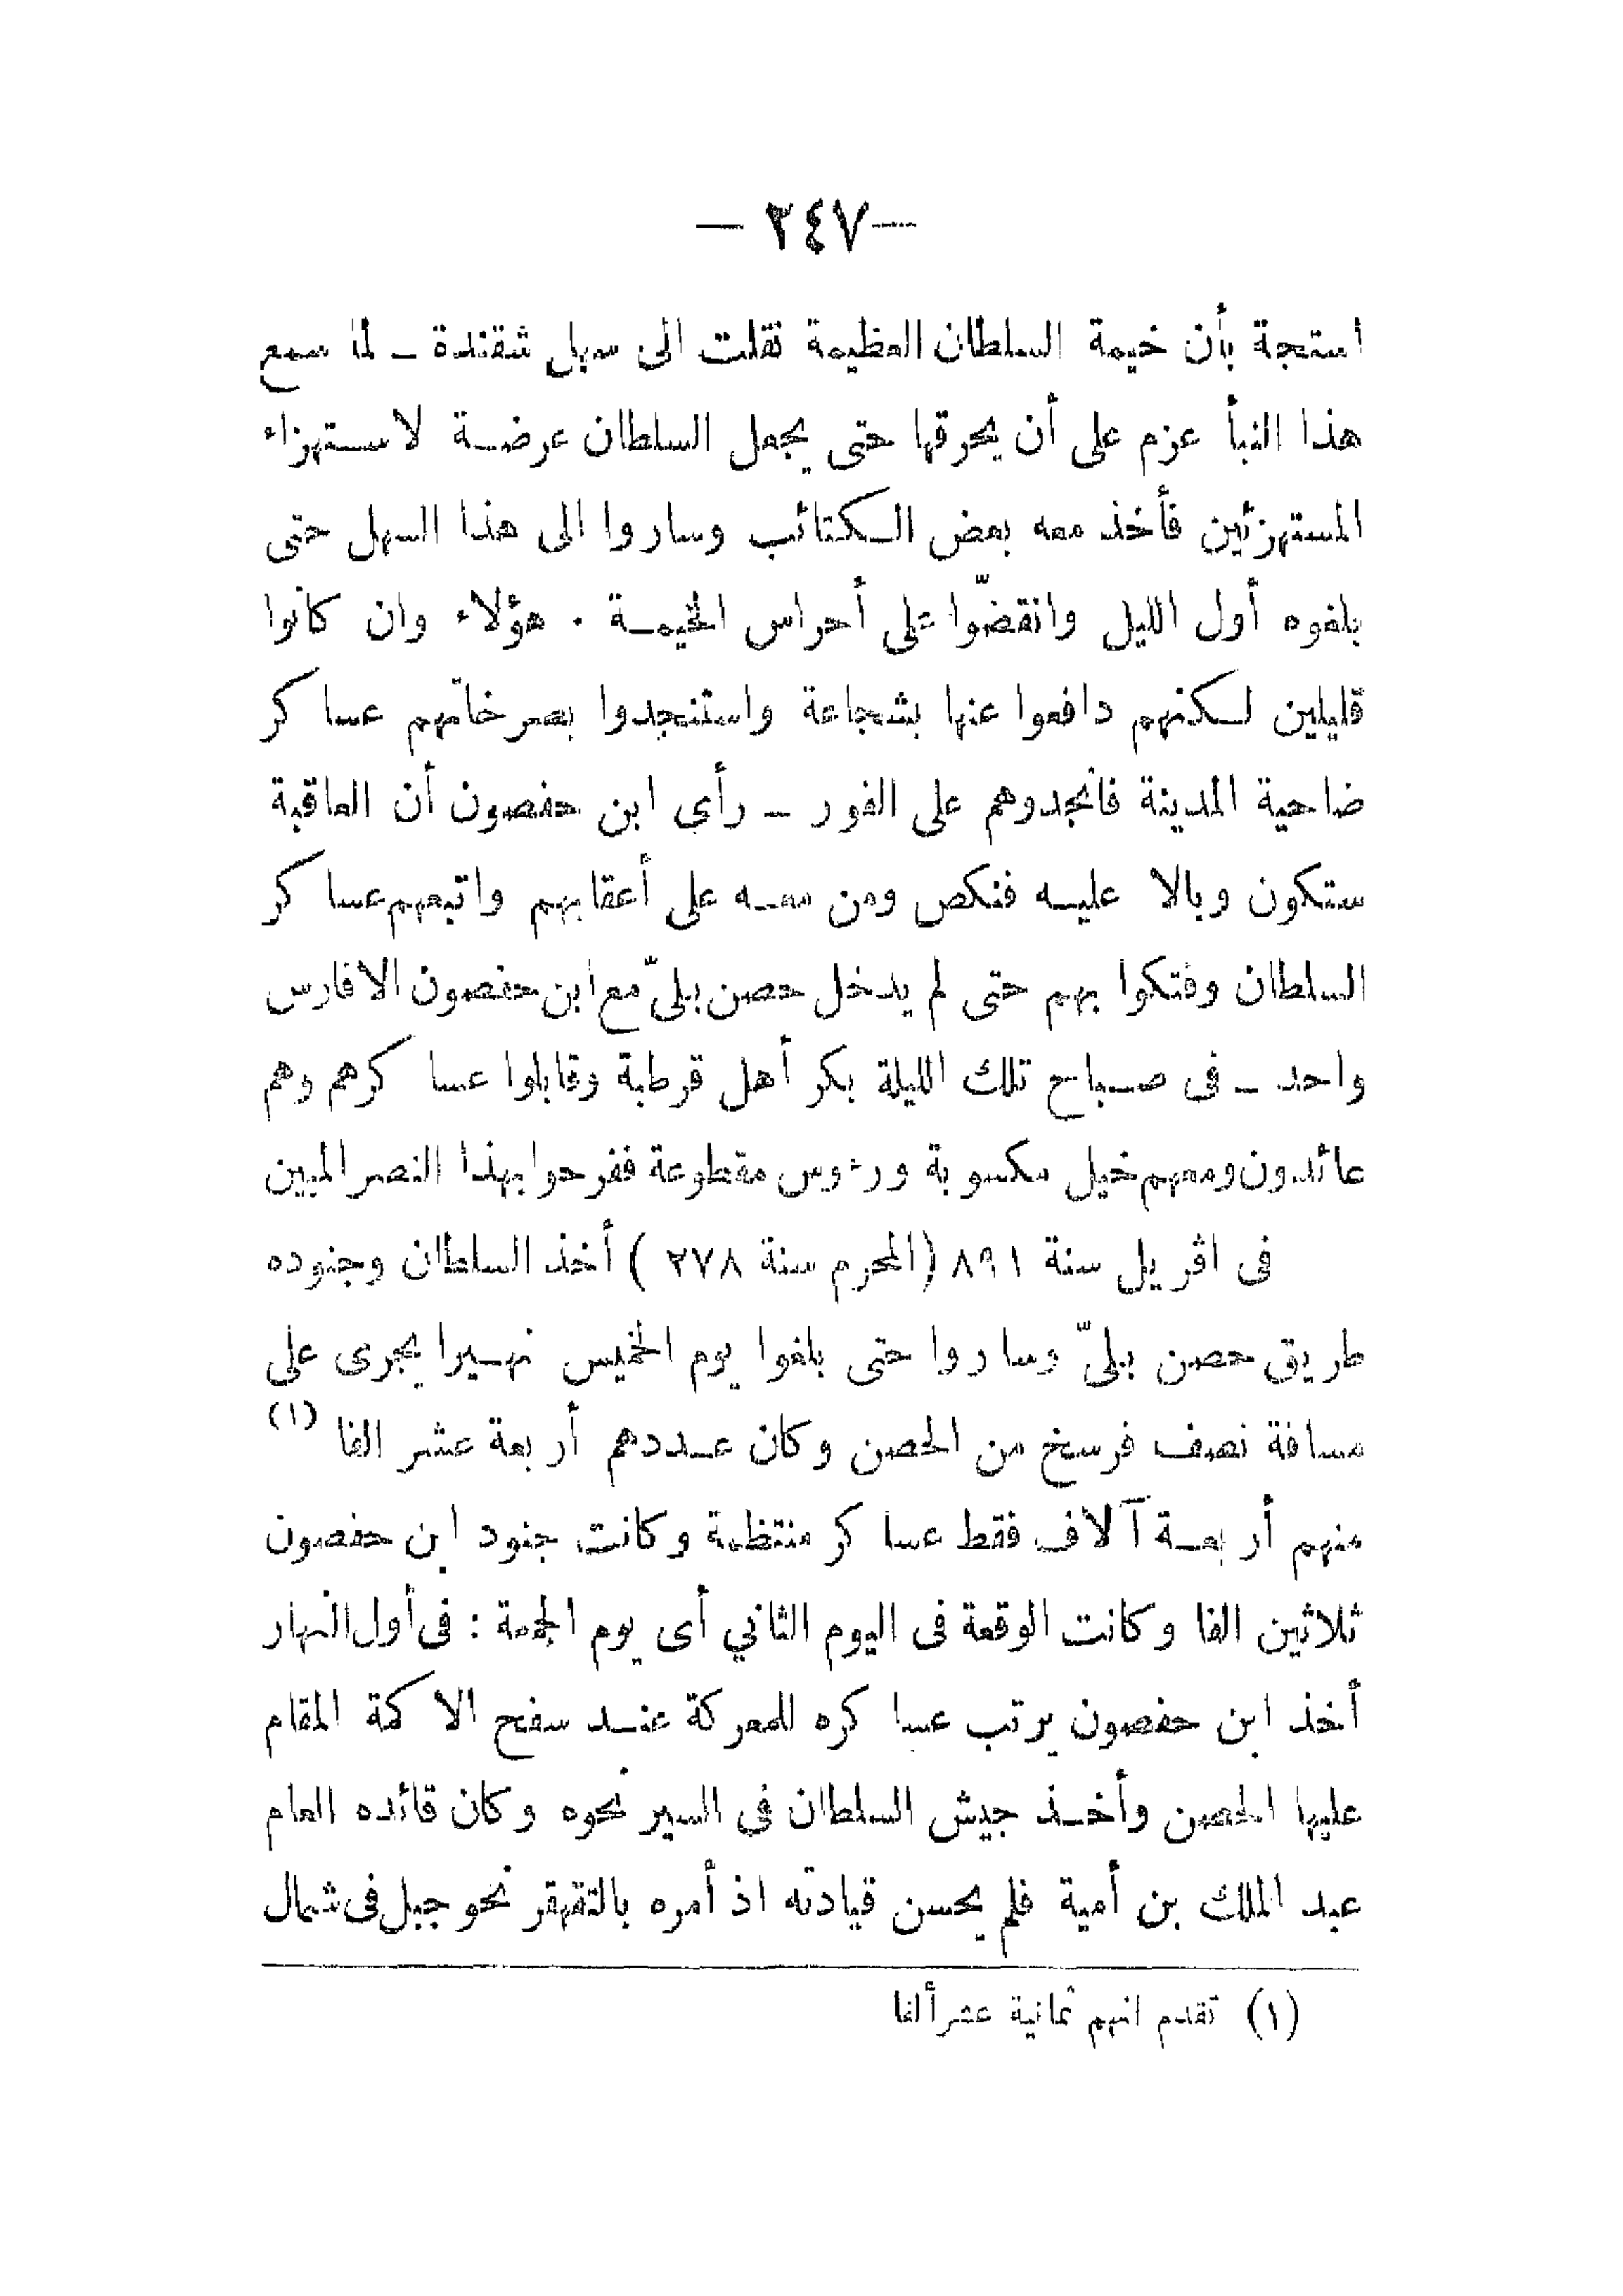 — ٢٤٧ —
استجة بأن خيمة السلطان العظيمة نقلت الى سهل شقندة ــ لما سمع
هذا النبأ عزم على أن يحرقها حتى يجعل السلطان عرضة لاستهزاء
المستهزئين فأخذ معه بعض الكتائب وساروا الى هذا السهل حتى
بلغوه أول الليل وانقضّوا على أحراس الخيمة . هؤلاء وان كانوا
قليلين لكنهم دافعوا عنها بشجاعة واستنجدوا بصرخاتهم عساكر
ضاحية المدينة فأنجدوهم على الفور ــ رأى ابن حفصون أن العاقبة
ستكون وبالا عليه فنكص ومن معه على أعقابهم واتبعهم عساكر
السلطان وفتكوا بهم حتى لم يدخل حصن بلىّ مع ابن حفصون الا فارس
واحد ــ فى صباح تلك الليلة بكر أهل قرطبة وقابلوا عساكرهم وهم
عائدون ومعهم خيل مكسوبة ورءوس مقطوعة ففرحوا بهذا النصر المبين
فى افريل سنة ٨٩١ (المحرم سنة ٢٧٨ ) أخذ السلطان وجنوده
طريق حصن بلىّ وساروا حتى بلغوا يوم الخميس نهيرا يجرى على
مسافة نصف فرسخ من الحصن وكان عددهم أربعة عشر الفا (١)
منهم أربعة آلاف فقط عساكر منتظمة وكانت جنود ابن حفصون
ثلاثين الفا وكانت الوقعة فى اليوم الثاني أى يوم الجمعة : فى أول النهار
أخذ ابن حفصون يرتب عساكره للمعركة عند سفح الاكمة المقام
عليها الحصن وأخذ جيش السلطان فى السير نحوه وكان قائده العام
عبد الملك بن أمية فلم يحسن قيادته اذ أمره بالتقهقر نحو جبل فى شمال
(١) تقدم انهم ثمانية عشر ألفا